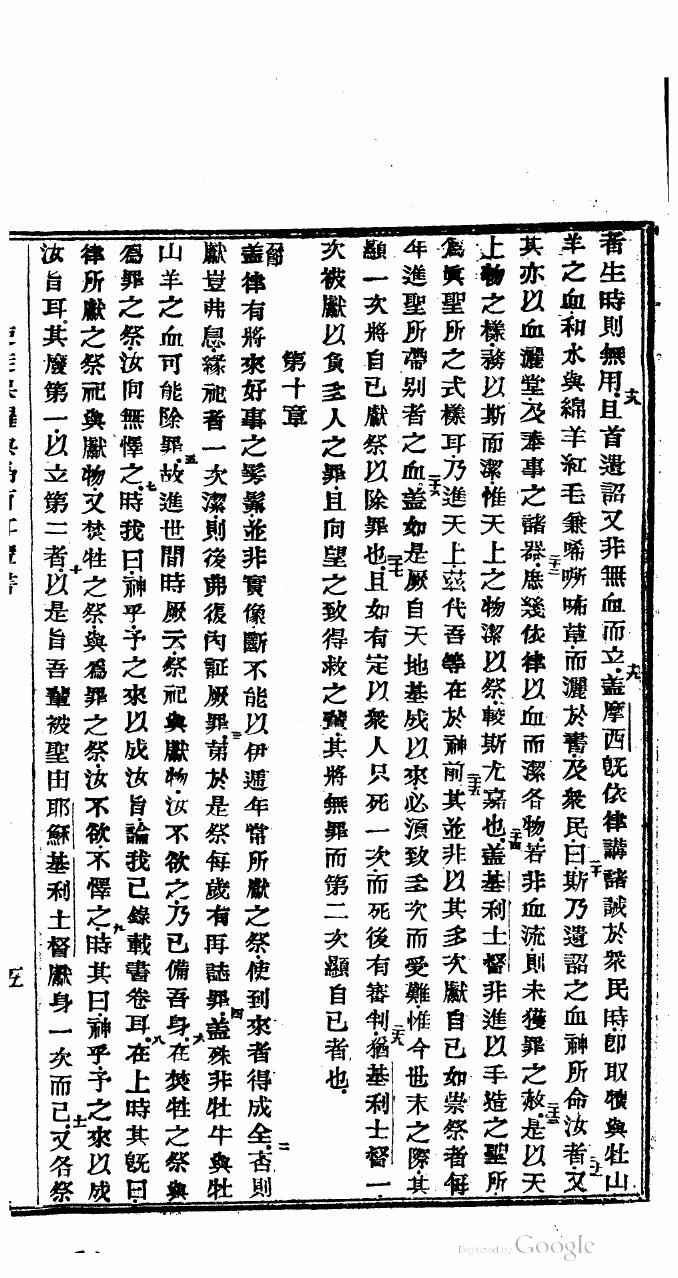 者生時則無用十八且首遺詔又非無血而立十九盖摩西既依律講諸誡於衆民時卽取犢與牡山
羊之血和水與綿羊紅毛兼唏㗭咊草而灑於書及衆民二十曰斯乃遺詔之血神所命汝者二十一又
其亦以血灑堂及奉事之諸器二十二庶幾依律以血而潔各物若非血流則未獲罪之赦二十三是以天
上物之樣務以斯而潔惟天上之物潔以祭較斯尤嘉也二十四盖基利士督非進以手造之聖所
爲眞聖所之式樣耳乃進天上兹代吾等在於神前二十五其並非以其多次獻自己如祟祭者每
年進聖所帶别者之血二十六盖如是厥自天地基成以來必須致多次而受難惟今世末之際其
顯一次將自己獻祭以除罪也二十七且如有定以衆人只死一次而死後有審判二十八猶基利士督一
次被獻以負多人之罪且向望之致得救之輩其將無罪而第二次顯自己者也
第十章
一節盖律有將來好事之髣髴並非實像斷不能以伊逓年常所獻之祭使到來者得成全二否則
獻豈弗息緣祀者一次潔則後弗復內証厥罪三第於是祭每歲有再誌罪四盖殊非牡牛與牡
山羊之血可能除罪五故進世間時厥云祭祀與獻物汝不欲之乃已備吾身六在焚牲之祭與
爲罪之祭汝向無懌之七時我曰神乎予之來以成汝旨論我已錄載書卷耳八在上時其旣曰
律所獻之祭祀與獻物又焚牲之祭與爲罪之祭汝不欲不懌之九時其曰神乎予之來以成
汝旨耳其廢第一以立第二者十以是旨吾輩被聖由耶穌基利士督獻身一次而已十一又各祭
五
Digitized by Google